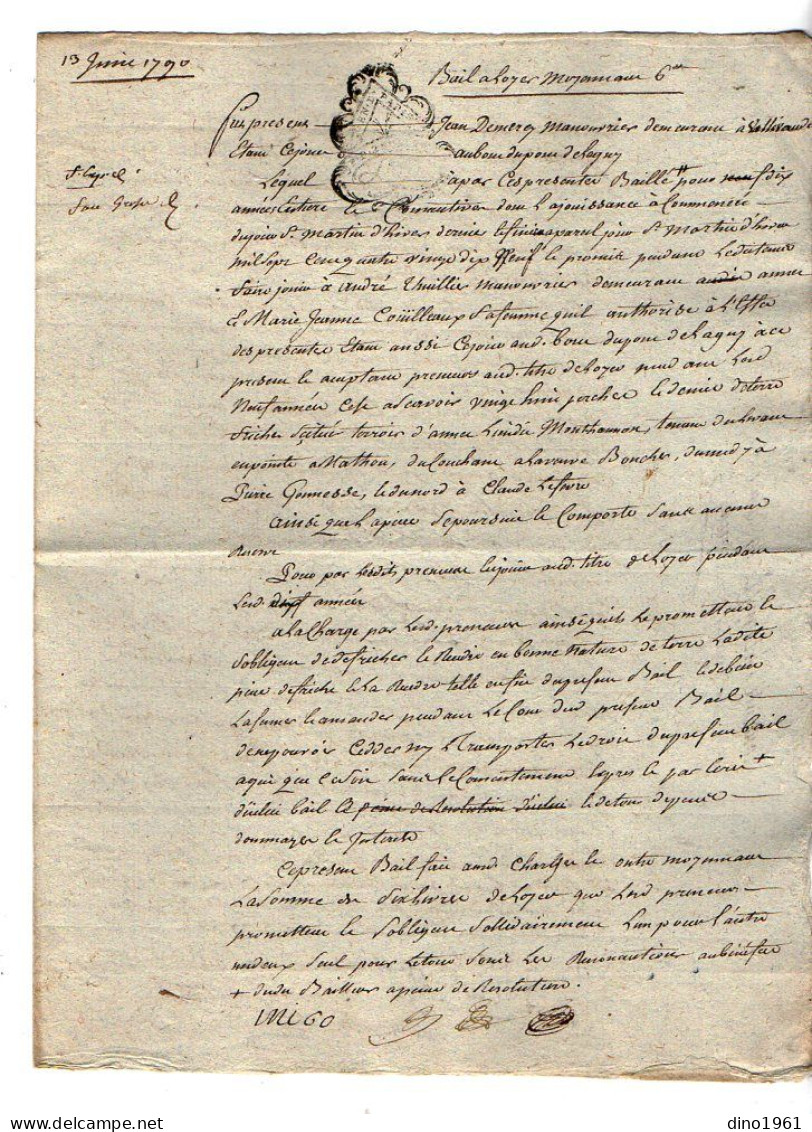 13 Juin 1790
Bail a Loyer Moyennant 6
Fut present Jean Demery Manouvrier demeurant à
Etant Cejour au bout du pont de Lagny
Lequel a par Ces presentes Baillé pour neuf dix
années Entiere Consecutives dont La jouissance à Commencé
du jour St Martin d'hiver dernier jour St Martin d'hiver
mil Sept Cent quatre vingt dix Neuf promit pendant Ledit tems
faire jouir à André Thuillier manouvrier demeurant annet
Et Marie Jeanne Couilleaux Sa femme quil authorise à L'Effet
des presentes Etant aussi Cejour aud. bout du pont de Lagny à ce
present acceptant preneurs aud. titre de Loyer pendant Lesd
Neuf année C'est ascavoir vingt huit perches de terre
friche Scitué terroir d'annet Lieudit Monthaumon, tenant du Levant
en pointe a Mathou, du Couchant a La veuve Boucher, du midy à
Pierre Gennesse, du nord à Claude Lefevre
ainsi que La piece Se poursuit Comporte Sans aucune
Reserve
Pour par Lesdits preneurs jouir aud. titre de Loyer pendant
Lesd. dix année
a La Charge par Lesd. preneurs ainsi quils Le promettent
S'obligent de defricher Rendre en bonne Nature de terre Ladite
piece de friche La Rendre telle en fin du present Bail de bien
La fumer amander pendant Le Cour dud present Bail
de ne pouvoir Cedder ny Transporter Le droit du present bail
a qui que ce soit Sans Le Consentement Expres par Ecrit +
d'icelui bail peine de Resolution d'icelui de tous depens
dommages Interets
Ce present Bail fait aud. Charges outre moyennant
La Somme de Six Livres de Loyer que Lesd preneurs
promettent S'obligent Sollidairement L'un pour L'autre
un deux Seul pour Le tout Sous Les Renonciations au benefice
+ dudit Bailleur a peine de Resolution.
dino1961